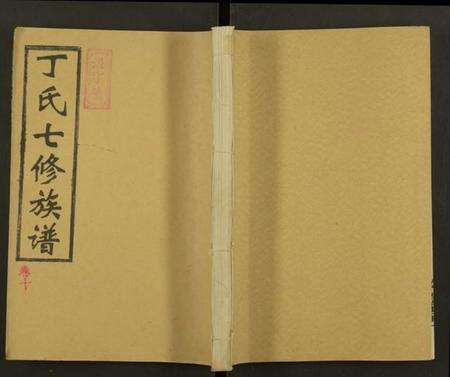 丁氏七修族谱
卷十